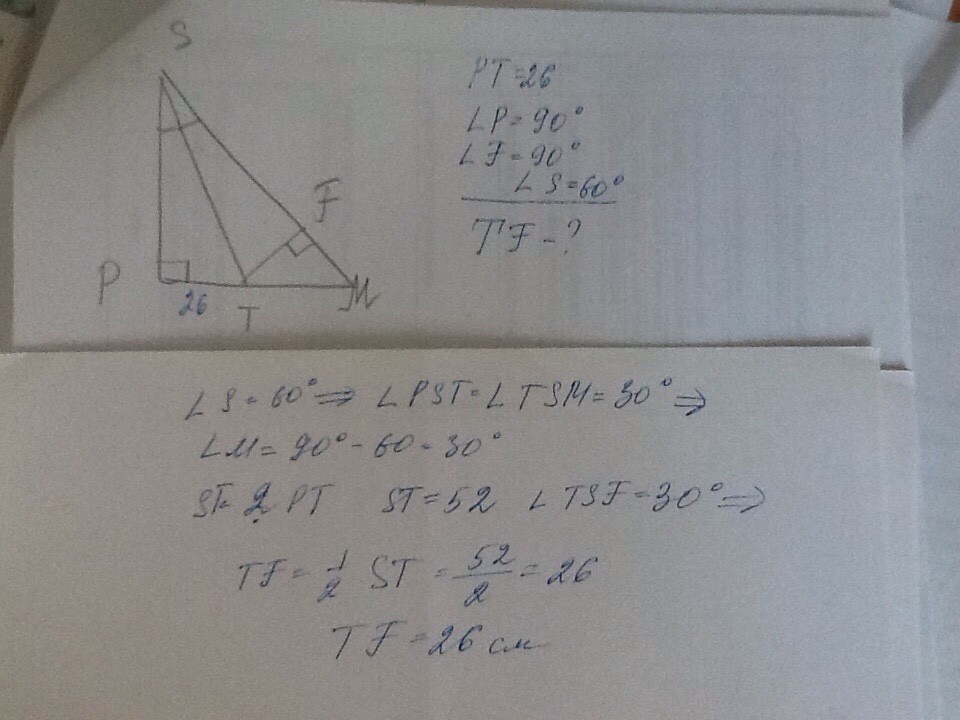 S
F
P
26
T
M
PT = 26
∠P = 90°
∠F = 90°
∠S = 60°
TF - ?
∠S = 60° ⇒ ∠PST = ∠TSM = 30° ⇒
∠M = 90° - 60 = 30°
ST = 2 PT ST = 52 ∠TSF = 30° ⇒
TF = 1/2 ST = 52/2 = 26
TF = 26 см